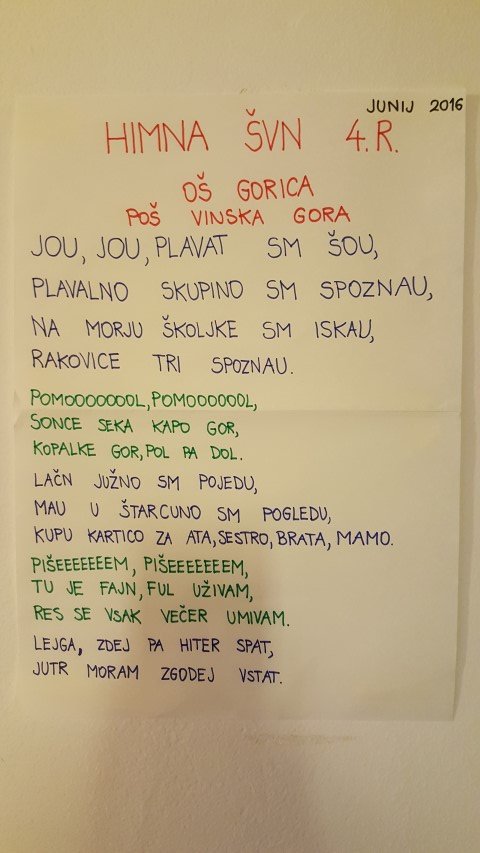 JUNIJ 2016
HIMNA ŠVN 4.R.
OŠ GORICA
POŠ VINSKA GORA
JOU, JOU, PLAVAT SM ŠOU,
PLAVALNO SKUPINO SM SPOZNAU,
NA MORJU ŠKOLJKE SM ISKAU,
RAKOVICE TRI SPOZNAU.
POMOOOOOOOL, POMOOOOOOL,
SONCE SEKA KAPO GOR,
KOPALKE GOR, POL PA DOL.
LAČN JUŽNO SM POJEDU,
MAU U ŠTARCUNO SM POGLEDU,
KUPU KARTICO ZA ATA, SESTRO, BRATA, MAMO.
PIŠEEEEEEEM, PIŠEEEEEEEM,
TU JE FAJN, FUL UŽIVAM,
RES SE VSAK VEČER UMIVAM.
LEJGA, ZDEJ PA HITER SPAT,
JUTR MORAM ZGODEJ VSTAT.